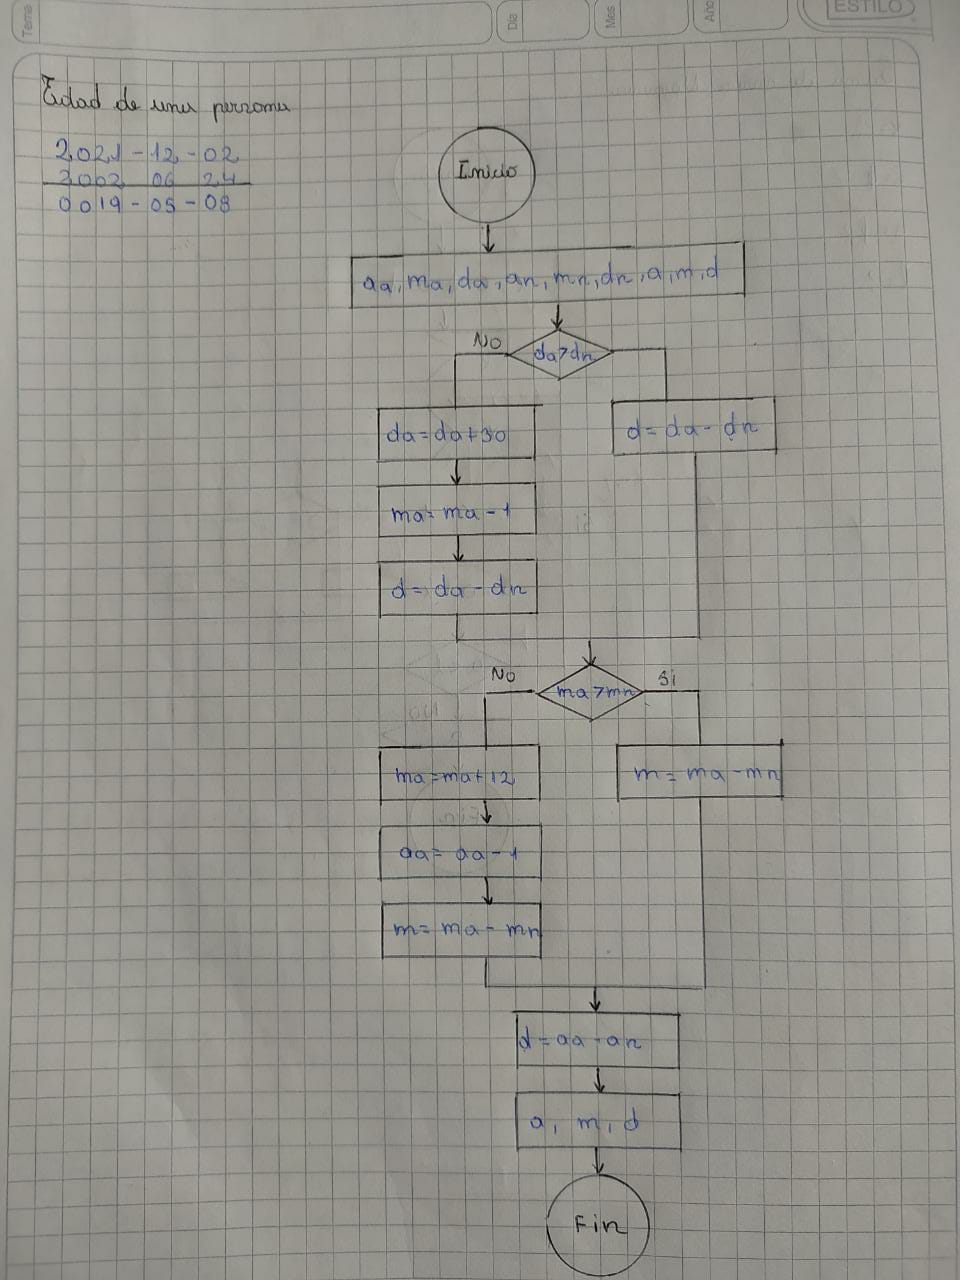 Tema
Dia
Mes
Año
ESTILO
Edad de una persona
2021-12-02
2002 06 24
0019-05-08
Inicio
aa, ma, da, an, mn, dn, a, m, d
No
da>dn
da=da+30
d=da-dn
ma=ma-1
d=da-dn
No
ma>mn
Si
ma=ma+12
m=ma-mn
aa=aa-1
m=ma-mn
d=aa-an
a, m, d
Fin